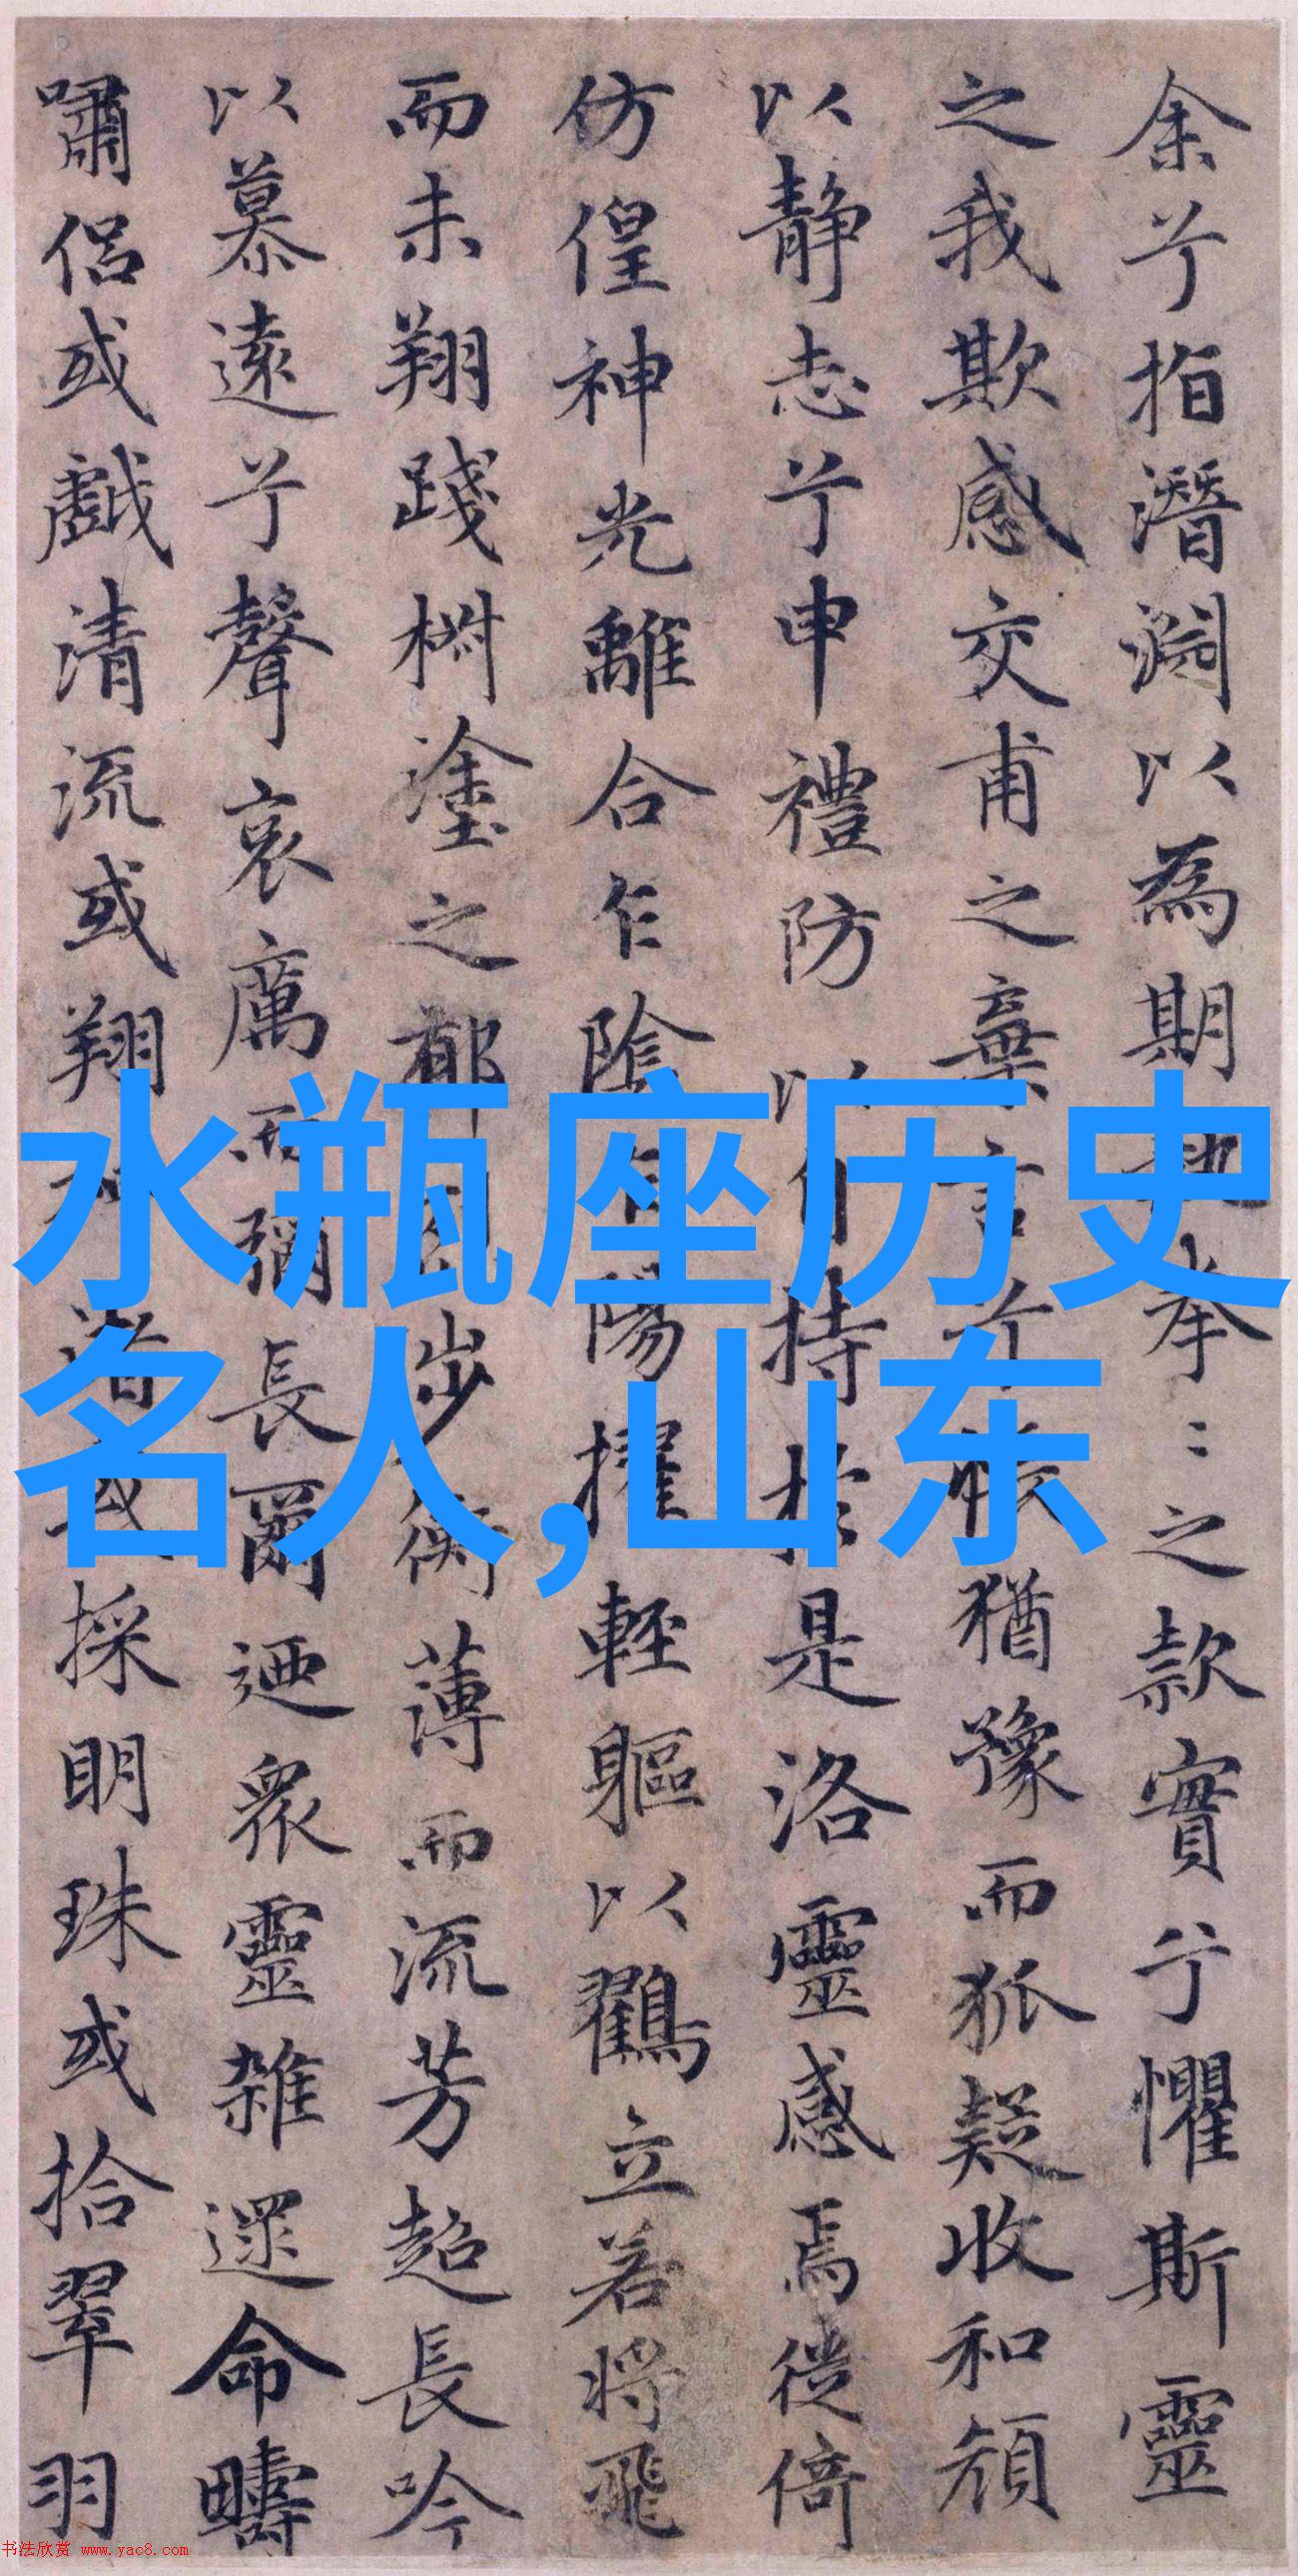 余兮指潛淵以為期執拳〻之款實兮懼斯靈
之我欺感交甫之棄言兮悵猶豫而狐疑收和顏
以靜志兮申禮防以自持於是洛靈感焉徙倚
仿偟神光離合乍陰乍陽擢輕軀以鸖立若將飛
而未翔踐椒塗之郁步衡薄而流芳超長吟
以慕遠兮聲哀厲而彌長爾迺眾靈雜遝命疇
嘯侶或戲清流或翔渚或採明珠或拾翠羽
水瓶座历史
名人,山东
书法欣赏 www.yac8.com